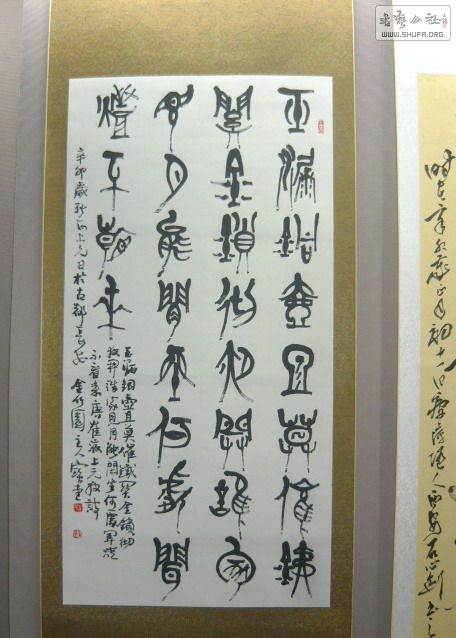 書藝公社
WWW.SHUFA.ORG
玉漏銅壺且莫催鐵
關金鎖徹明開誰家
見月能閒坐何處聞
燈不看來
玉漏銅壺且莫催鐵關金鎖徹
開誰家見月能閒坐何處聞燈
不看來唐崔液上元夜詩
辛卯歲新正上元日於古都長安
金竹園主人
時在辛卯歲正月初十一日